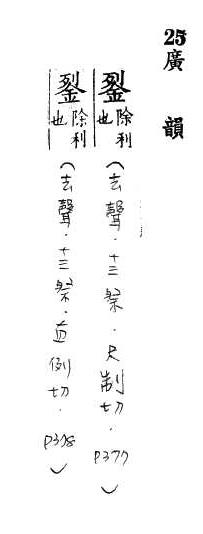 25廣韻
銐除利也（去聲．十三祭．尺制切．P377）
銐除利也（去聲．十三祭．直例切．P378）